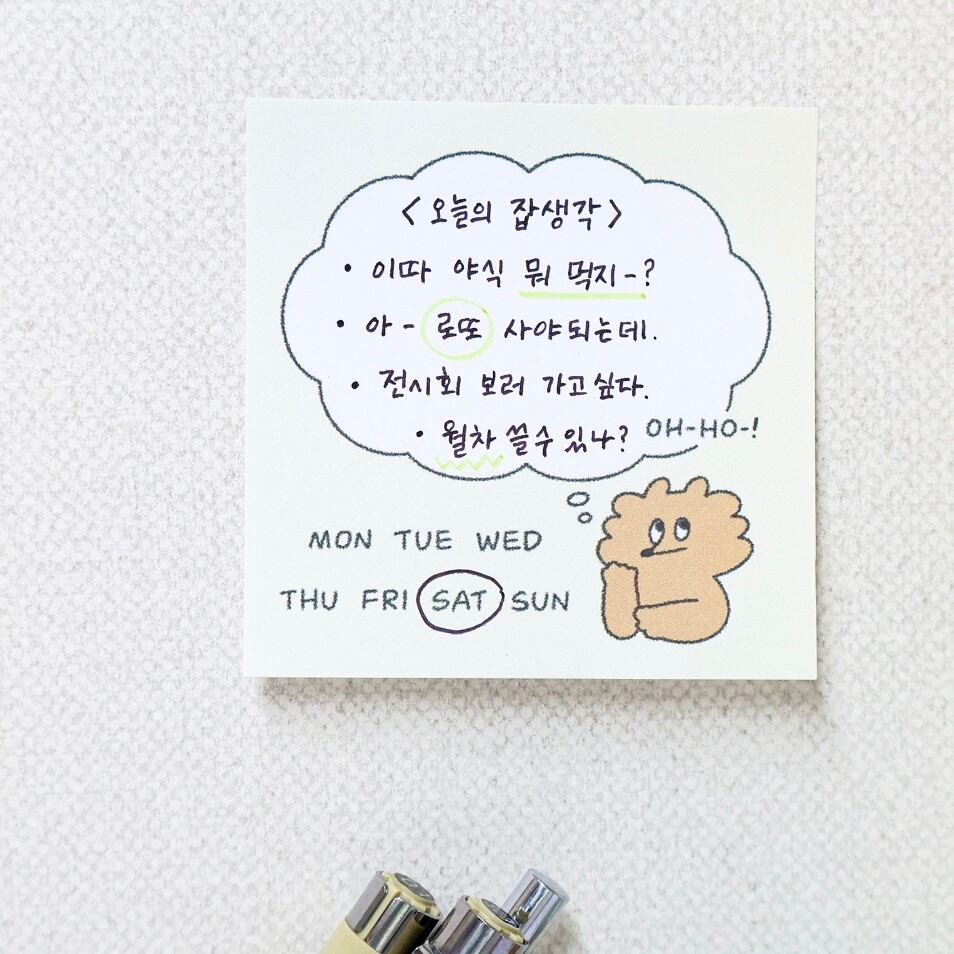 < 오늘의 잡생각 >
• 이따 야식 뭐 먹지-?
• 아- 로또 사야되는데.
• 전시회 보러 가고싶다.
• 월차 쓸수있나?
OH-HO-!
MON TUE WED
THU FRI SAT SUN